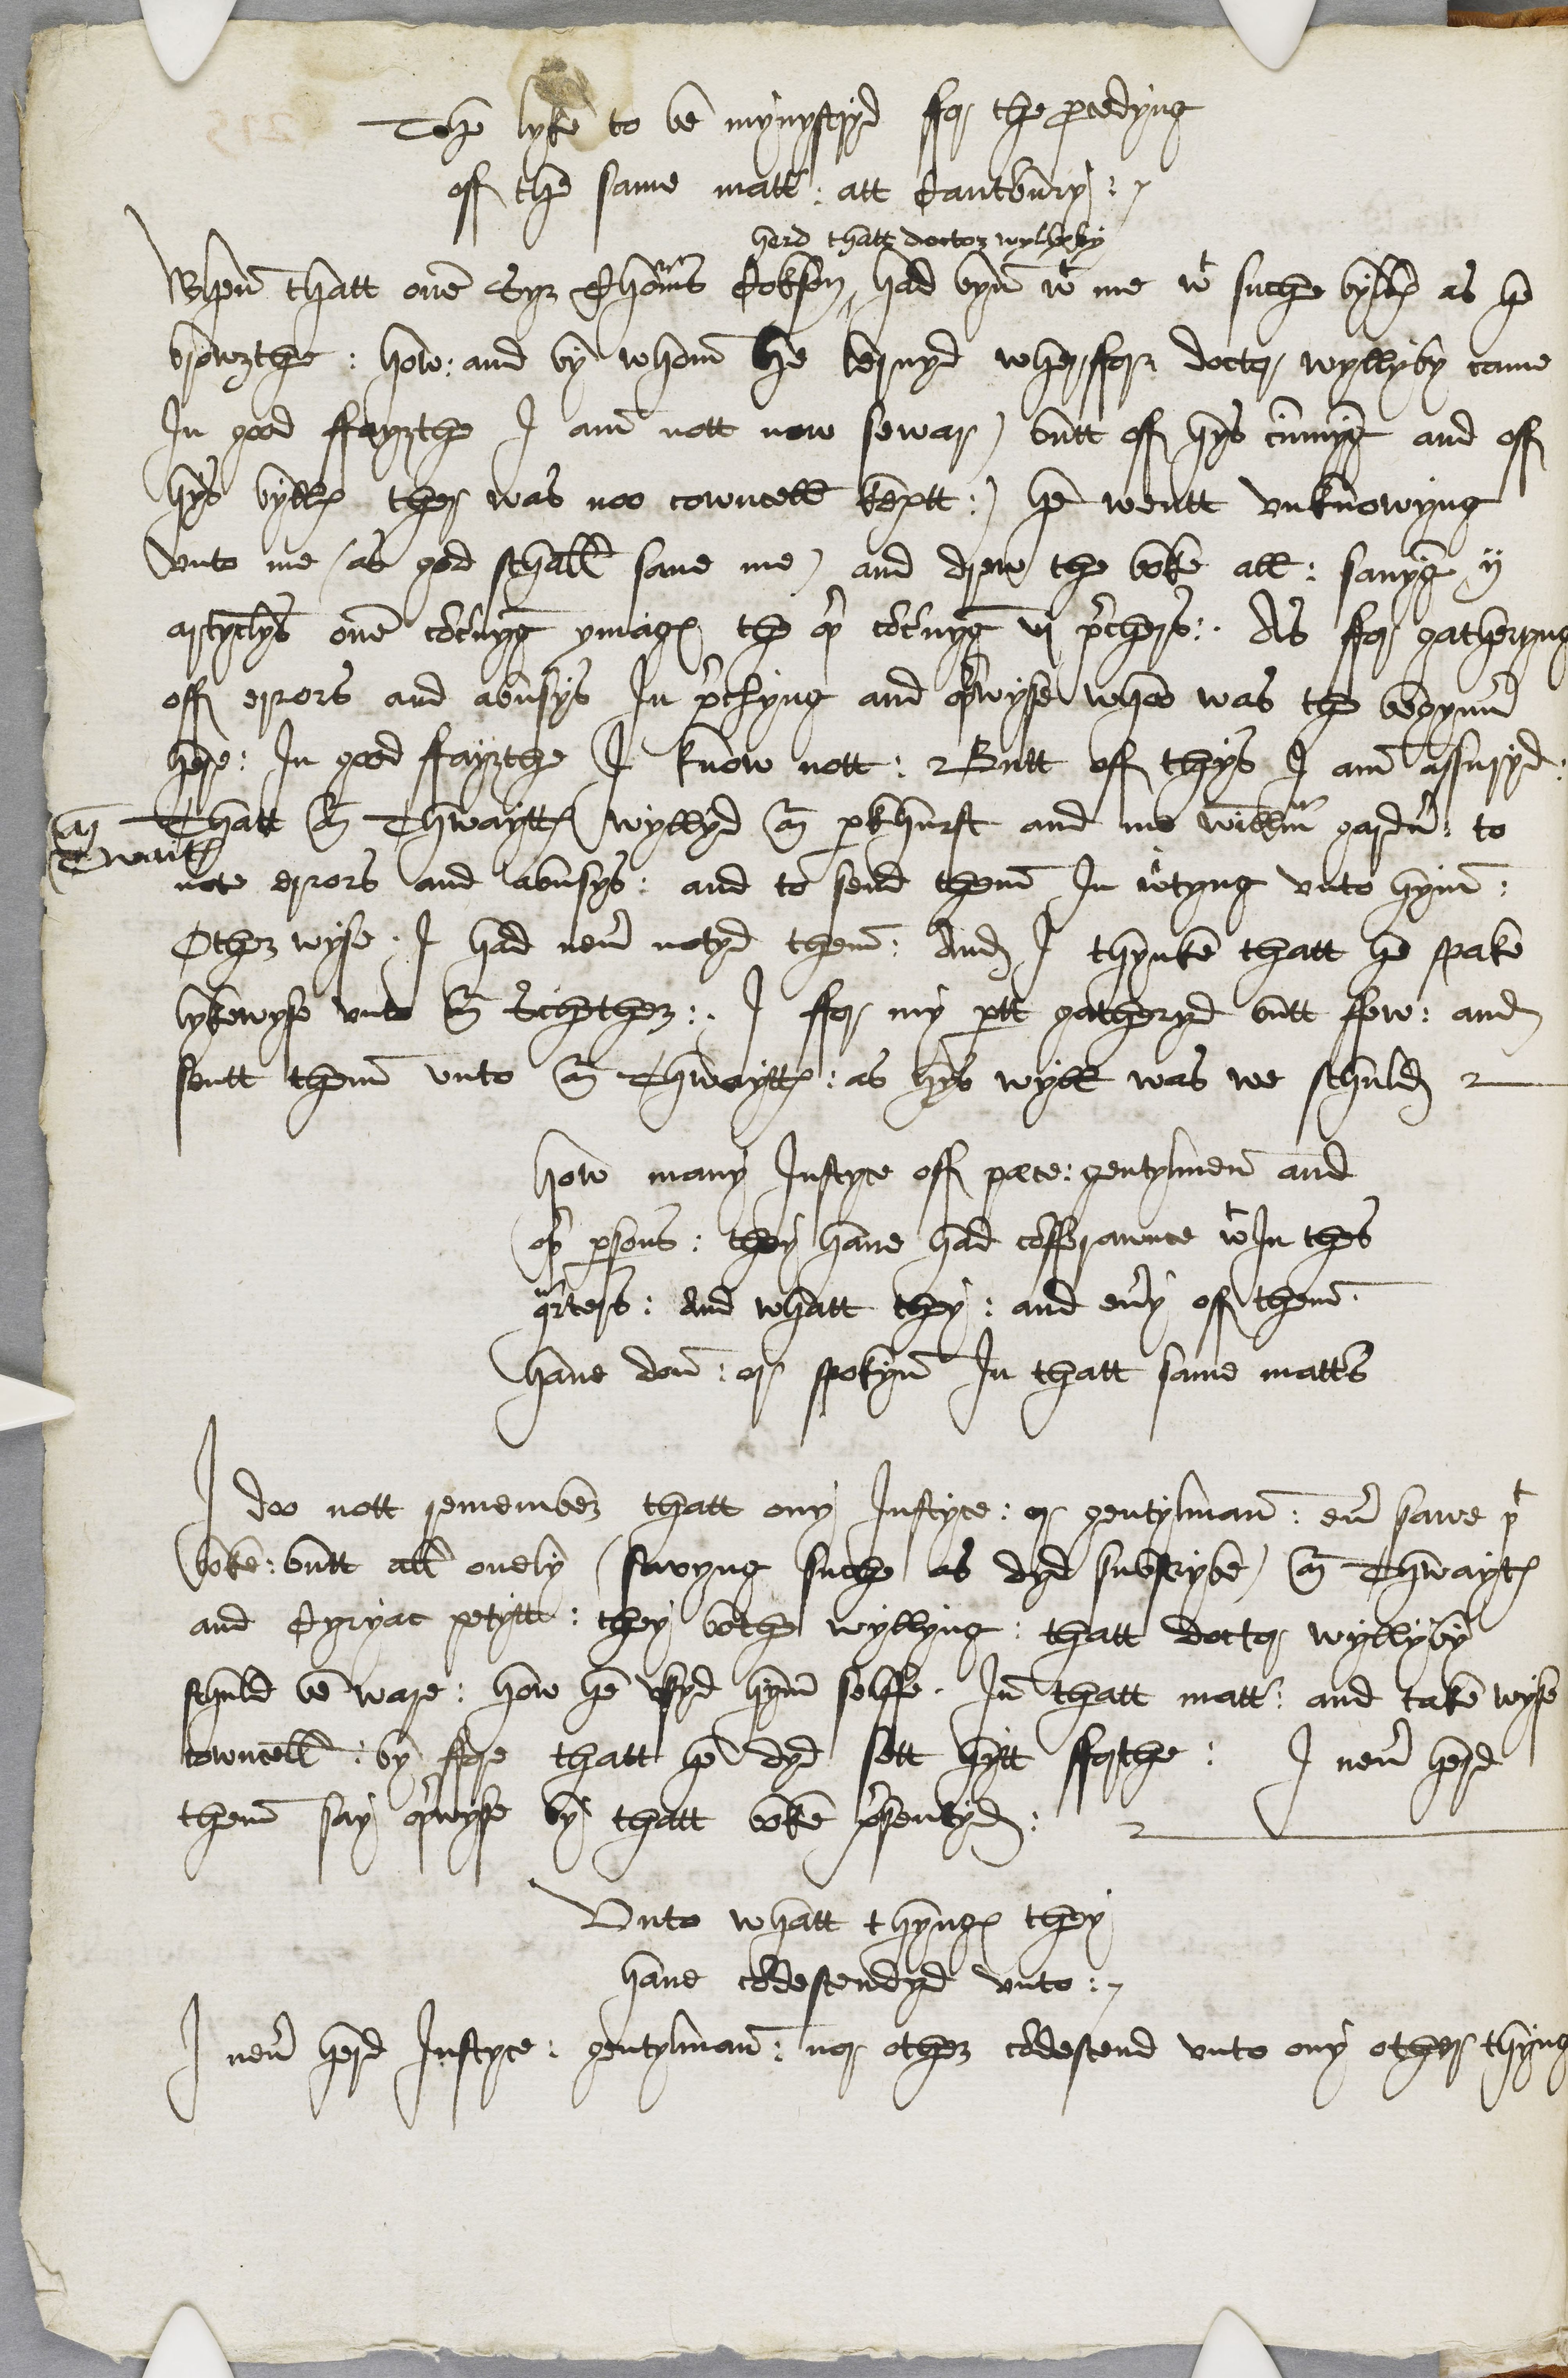 The lyke to be mynystryd ffor the ꝓcedyng
off the same matt͛ : att Cantbury :
herd thatt doctor wyllyby
Whēn thatt one Syr Thom̄s Cokson, had byn̄ wt me wt suche byllꝭ as he
browzthe : how : and by whom̄ he lernyd wherffor doctor wyllyby came
In good ffayzthe I am̄ nott now sewar) butt off hys cūmyḡ and off
hys byllꝭ ther was noo cowncell keptt :) he wentt vnknowyng
vnto me (as god schall saue me) and drew the boke all : sauyḡ ij
artyclys one cōc͛nyḡ ymagꝭ the oþ͛ cōc͛nyḡ vj p͛chers : As ffor gatheryng
off errors and abusys In p͛chyng and oþ͛wyse whoo was the begynn͛
here : In good ffayzthe I know nott : Butt off thys I am̄ assuryd :
Thatt Mͬ Thwayttꝭ wyllyd Mͬ ꝑkhurst and me will̄m gardn͛ : to
Mͬ
Twaitꝭ
note errors and abusys : and to send them̄ In wͬtyng vnto hym̄ :
Other wyse I had neu͛ notyd them̄ : And I thynke thatt he spake
lykewyse vnto Mͬ Sethether : I ffor my ꝑtt gatheryd butt few : and
sentt them̄ vnto Mͬ Thwayttꝭ : as hys wyll was we schuld
how many Justyce off pece : gentylmen and
oþ͛ ꝑsons : they haue had cōfferaunce wtIn thes
qͬters : And whatt they : and eu͛y off them̄
haue don̄ : or spokyn̄ In thatt same matt͛s
I doo nott remember thatt ony Justyce : or gentylman̄ : eu͛ sawe þt
boke : butt all onely (sauyng suche as dyd subscrybe) Mͬ Thwaytꝭ
and Cyryac petytt : they bothe wyllyng : thatt doctor wyllyby
schuld be ware : how he vsyd hym̄ selffe In̄ thatt matt͛ : and take wyse
cowncell : by ffore thatt he dyd sett hytt fforthe : I neu͛ herd
them̄ say oþ͛wyse by thatt boke p͛sentyd :
Vnto whatt thyngꝭ they
haue cōdescendyd vnto :
I neu͛ herd Justyce : gentylman̄ : nor other cōdescend vnto ony other thyng